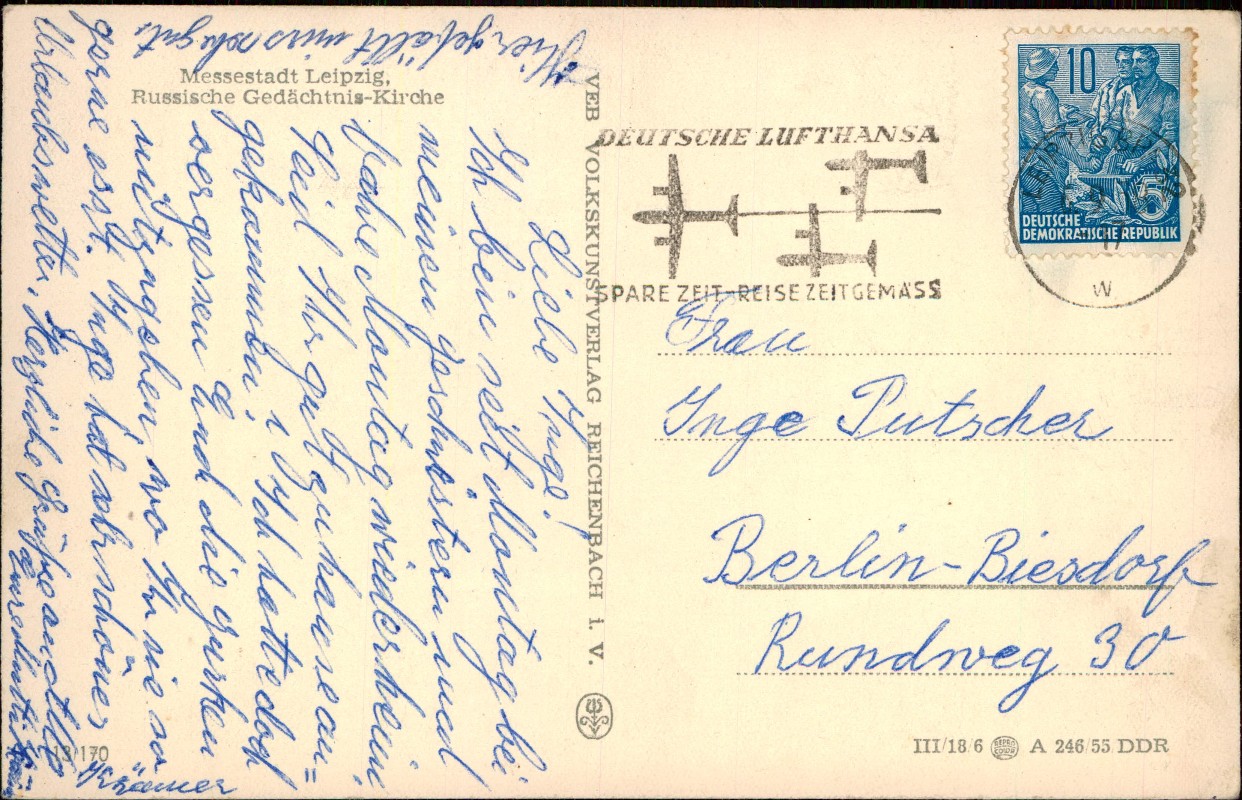 Messestadt Leipzig,
Russische Gedächtnis-Kirche
Hier gefällt mirs sehr gut
Liebe Inge!
Ich bin seit Montag bei
meinen Geschwistern und
fahre Montag wieder heim
Seid Ihr gut zu hause an=
gekommen, ? Ich hatte doch
vergessen Euch die Gurken
mitzugeben, wo Ihr sie so
gerne esst. Inge hat sehr schönes
Urlaubswetter, Herzliche Grüße an alle
Eure
Krämer
13/170
VEB VOLKSKUNSTVERLAG REICHENBACH i. V.
DEUTSCHE LUFTHANSA
SPARE ZEIT-REISE ZEITGEMÄSS
10
5
DEUTSCHE
DEMOKRATISCHE REPUBLIK
W
Frau
Inge Putscher
Berlin-Biesdorf
Rundweg 30
III/18/6 A 246/55 DDR